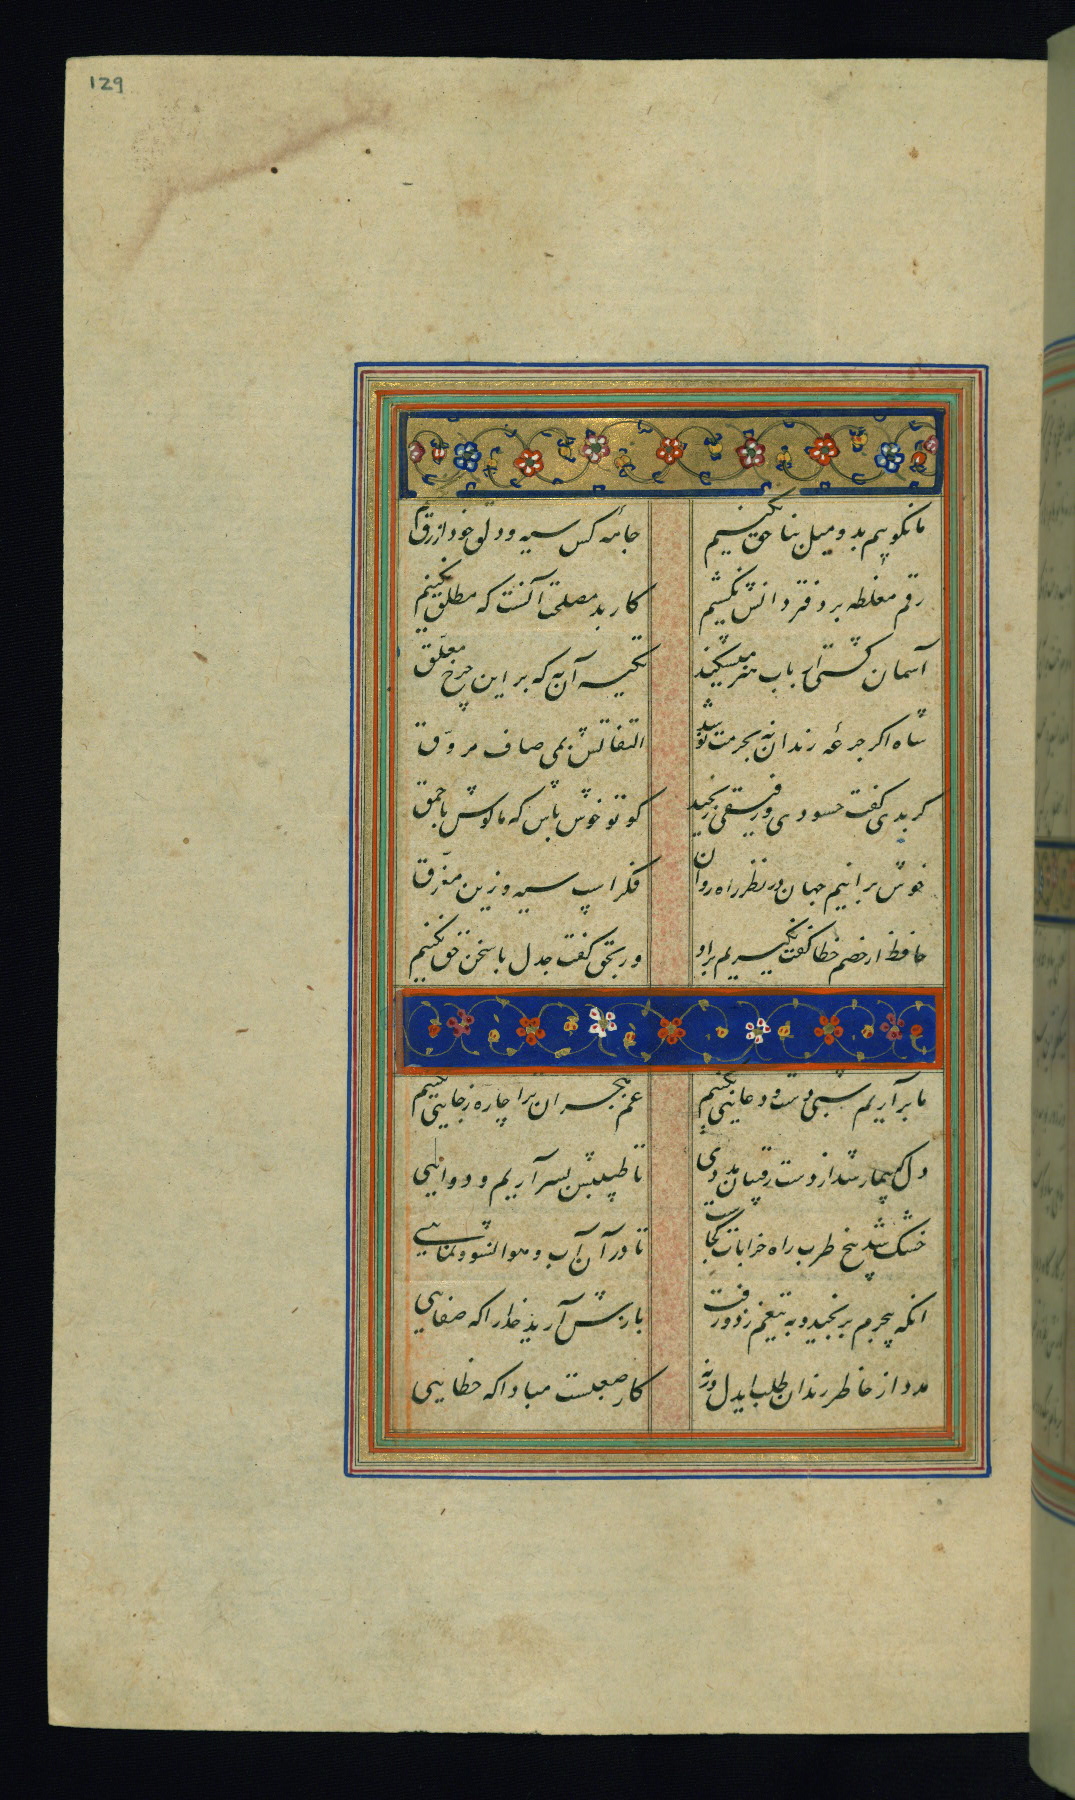 129
ما نگوییم بد و میل بناحق نکنیم
جامه کس سیه و دلق خود ازرق
رقم مغلطه بر دفتر دانش نکشیم
کار بد مصلحت آنست که مطلق نکنیم
آسمان کشتی ارباب هنر میشکند
تکیه آن به که بر این چرخ معلق
شاه اگر جرعه رندان نه بحرمت نوشد
التفاتش بمی صاف مروق
گر بدی گفت حسودی و رفیقی رنجید
گو تو خوش باش که ما گوش باحمق
خوش برانیم جهان در نظر راه روان
فکر اسب سیه و زین مغرق
حافظ ار خصم خطا گفت نگیریم بر او
ور بحق گفت جدل با سخن حق نکنیم
ما برآریم شبی دست و دعایی نکنیم
غم هجران ترا چاره ز جایی نکنیم
دل بیمار شد از دست رفیقان مددی
تا طبیبش بسر آریم و دوایی
خشک شد بیخ طرب راه خرابات کجاست
تا در آن آب و هوا نشو و نمایی
آنکه بیجرم برنجید و به تیغم زد و رفت
بازش آرید خدا را که صفایی
مدد از خاطر رندان طلب ایدل ورنه
کار صعبست مبادا که خطایی